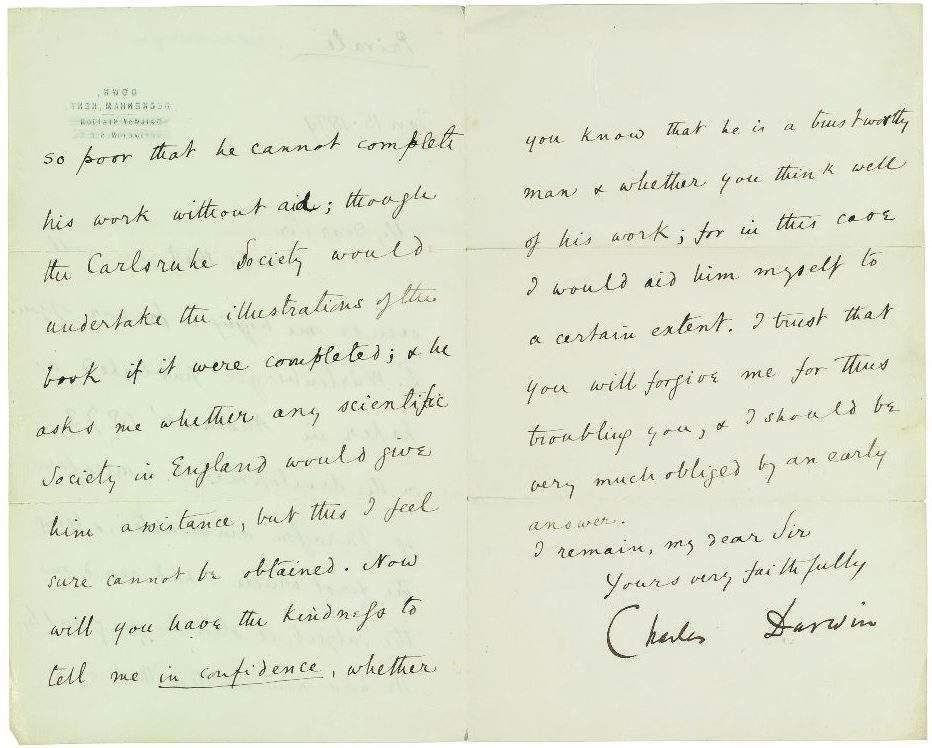 so poor that he cannot complete
his work without aid; though
the Carlsruhe Society would
undertake the illustrations of the
book if it were completed; & he
asks me whether any scientific
Society in England would give
him assistance, but this I feel
sure cannot be obtained. Now
will you have the kindness to
tell me in confidence, whether
you know that he is a trustworthy
man & whether you think well
of his work; for in this case
I would aid him myself to
a certain extent. I trust that
you will forgive me for thus
troubling you, & I should be
very much obliged by an early
answer.
I remain, my dear Sir
Yours very faithfully
Charles Darwin
Private
DOWN,
BECKENHAM, KENT.